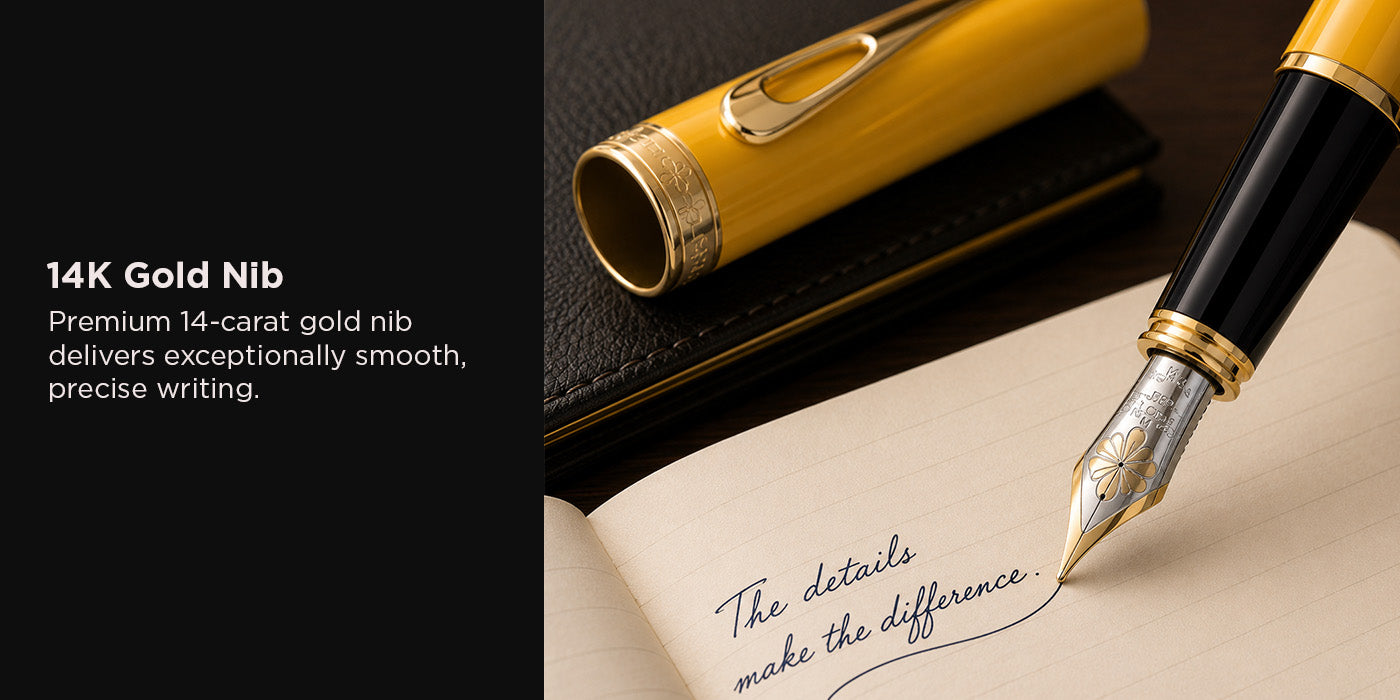 14K Gold Nib
Premium 14-carat gold nib
delivers exceptionally smooth,
precise writing.
The details
make the difference.